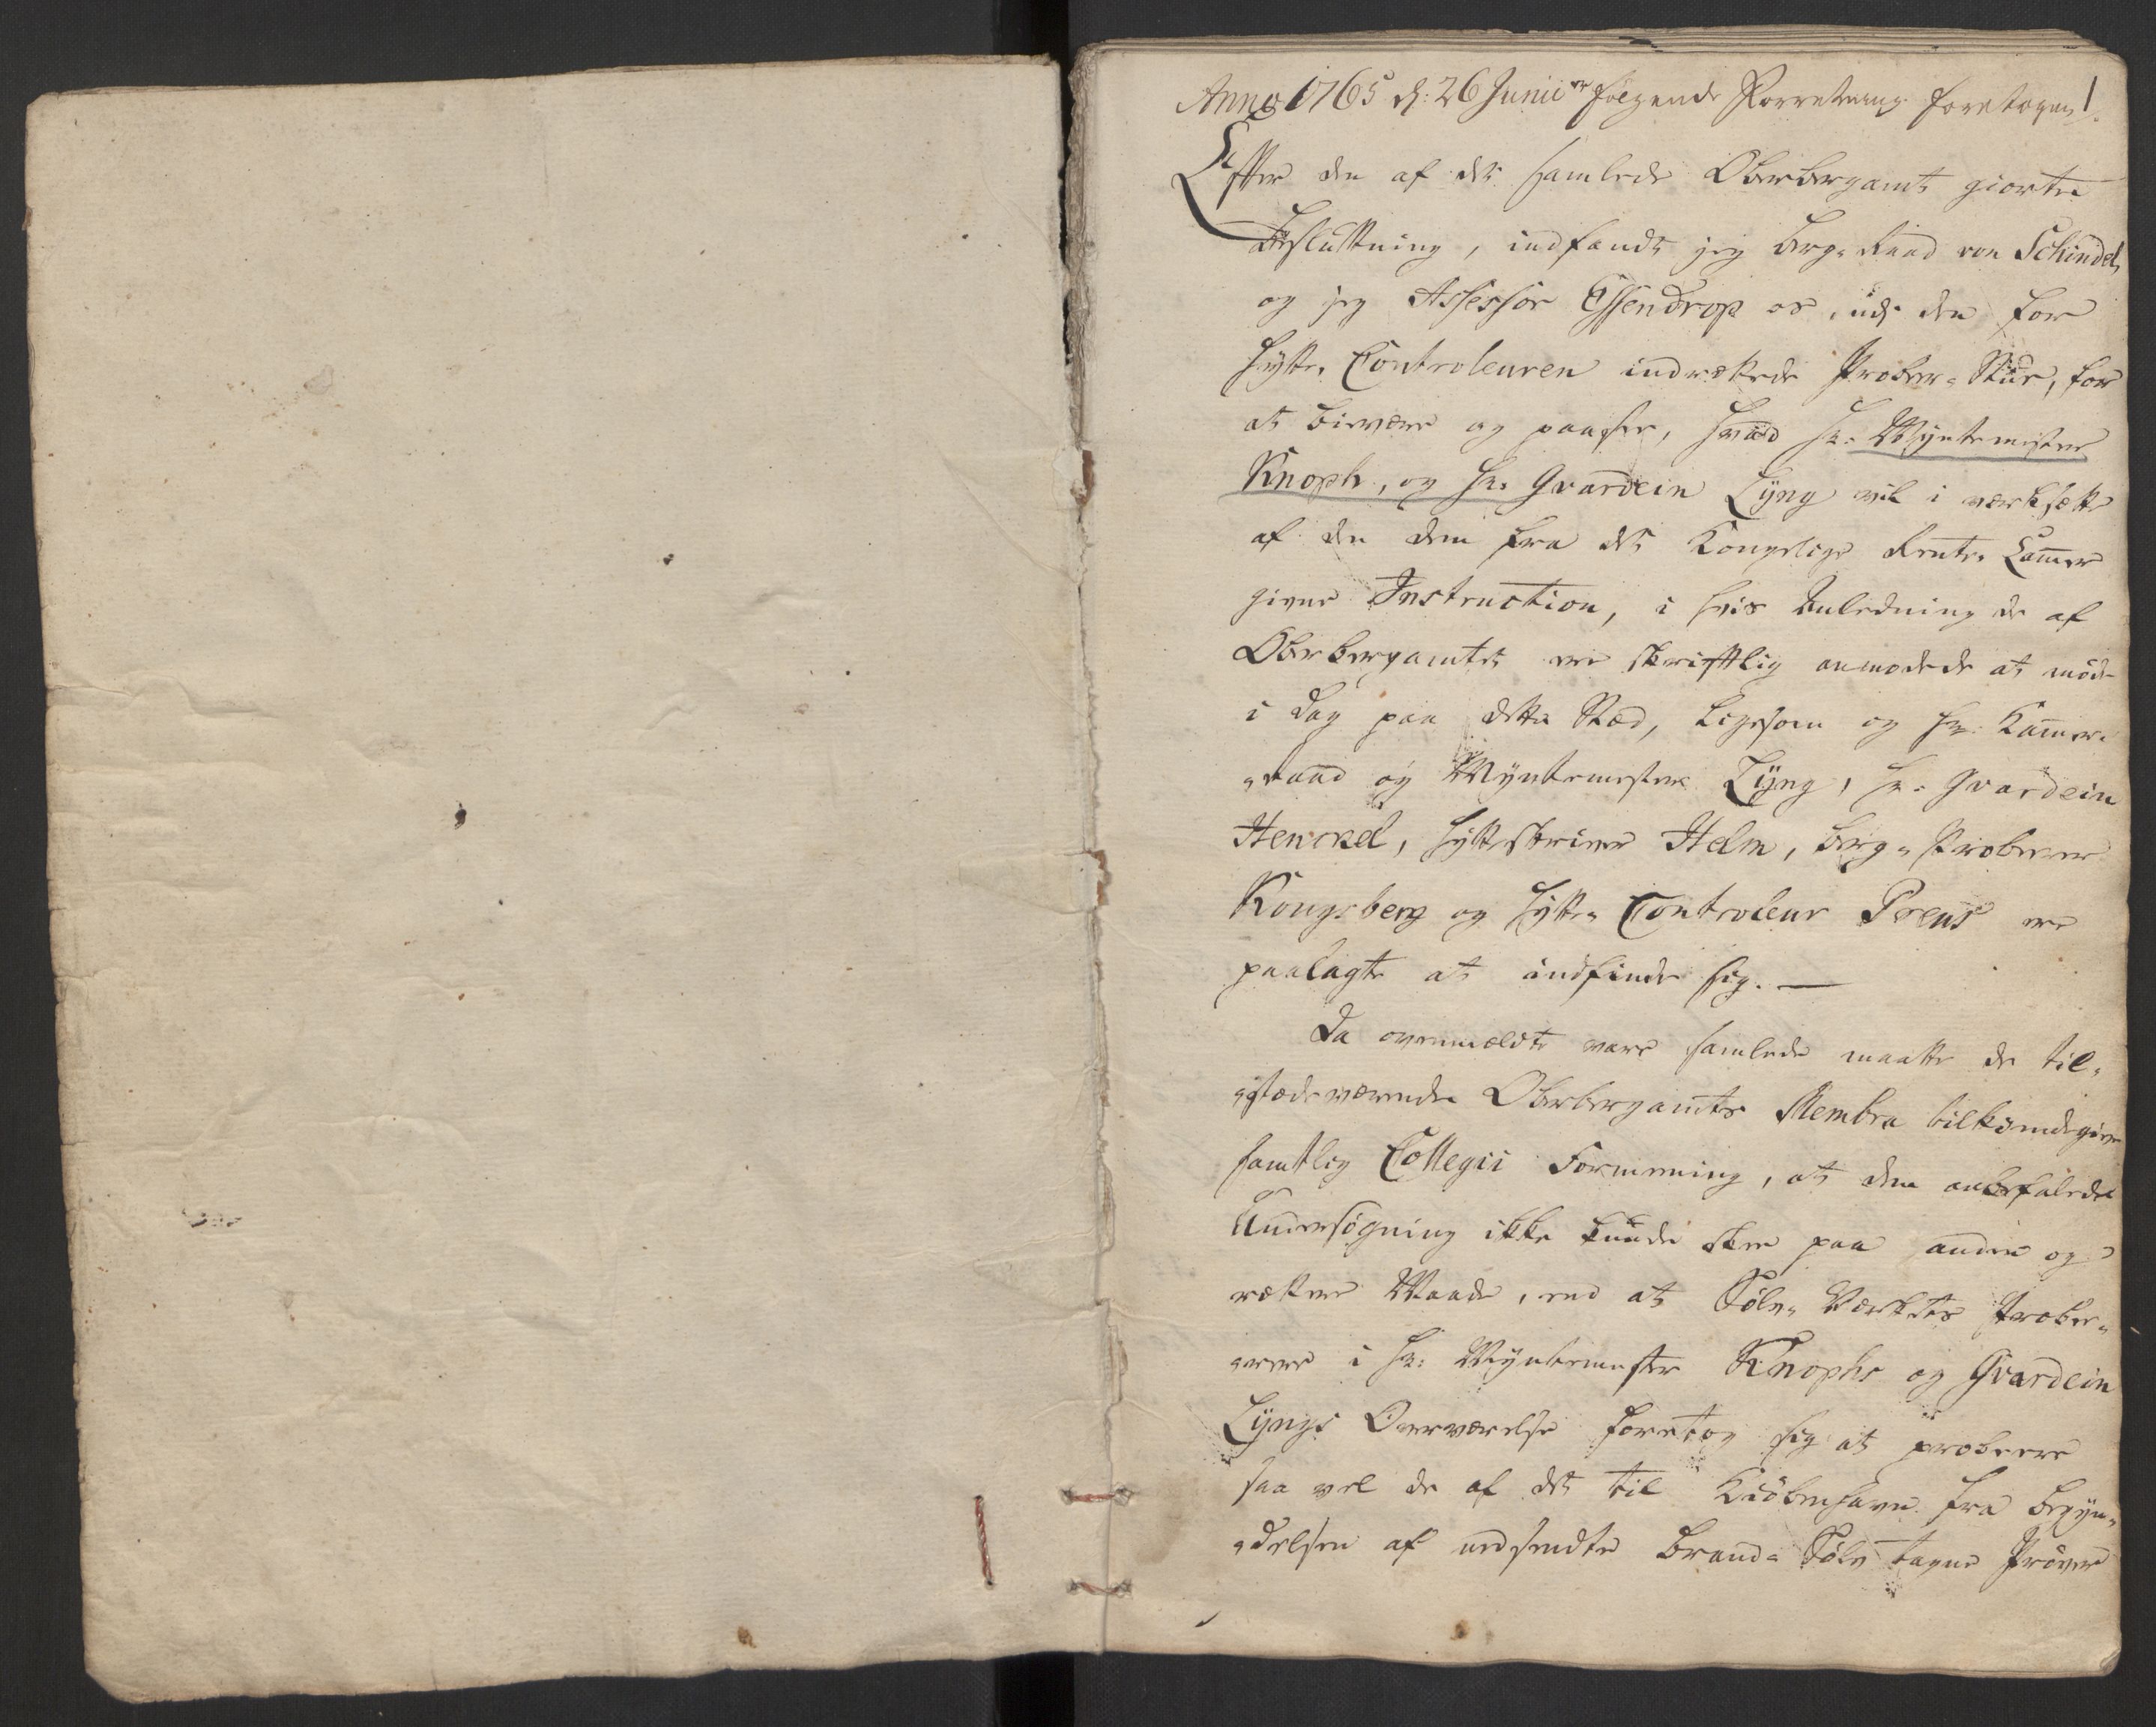 Anno 1765 d: 26 Junii er følgende Forretning foretagen 1.
Efter den af det samlede Oberbergamt giorte
Beslutning, indfandt jeg Berg-Raad von Schindel,
og jeg Assessor Essendrop os, udi den for
Hytte Controleuren indrettede Prober-Stue, for
at bievære og paasee, hvad Hr. Myntemester
Knoph, og Hr. Gvardein Lyng vil i værksætte
af den dem fra det Kongelige Rente Cammer
givne Instruction, i hvis Anledning de af
Oberbergamtet ere skriftlig anmodede at møde
i Dag paa dette Stæd, ligesom og Hr. Kammer-
-raad og Myntemester Lyng, Hr. Gvardein
Henckel, Hytteskriver Helm, Berg-Proberer
Kongsberg og Hytte-Controleur Preus ere
paalagte at indfinde sig. —
Da ovenmeldte vare samlede maatte de til-
-stædeværende Oberbergamts Membra tilkiendegive
samtlig Collegii Formening, at den anbefalede
Undersøgning ikke kunde skee paa anden og
rettere Maade, end at Sølv-Værkets Prober-
-erere i Hr. Myntemester Knophs og Gvardein
Lyngs Overværelse foretog sig at probeere
saa vel de af det til Kiøbenhavn fra Begyn-
-delsen af nedsendte Brand-Sølv tagne Prøver